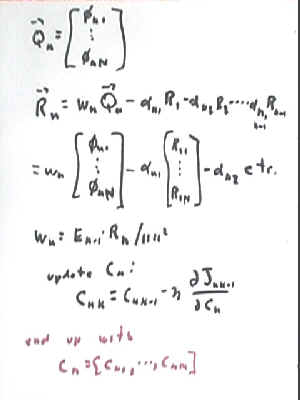 Q⃗ₙ = [φₙ₁ ⋮ φₙN]
R⃗ₙ = wₙ Q⃗ₙ - αₙ₁ R₁ - αₙ₂ R₂ ⋯ αₙ,ₙ₋₁ Rₙ₋₁
= wₙ [φₙ₁ ⋮ φₙN] - αₙ₁ [R₁₁ ⋮ R₁N] - αₙ₂ etc.
wₙ = Eₙ₋₁ · Rₙ /
update Cₙ:
∂Jₙₙ₋₁
∂Cₙ
end up with
Cₙ = [Cₙ₁, ⋯, Cₙₙ]